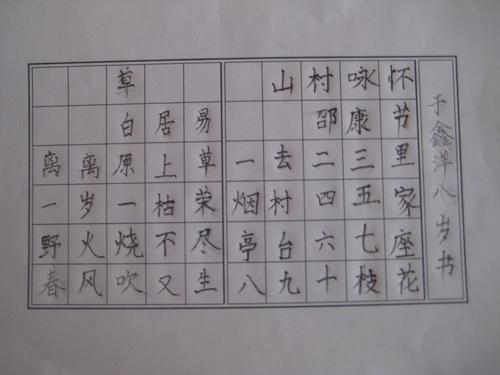 草
白居易
离离原上草
一岁一枯荣
野火烧不尽
春风吹又生
山村咏怀
邵康节
一去二三里
烟村四五家
亭台六七座
八九十枝花
于鑫洋八岁书